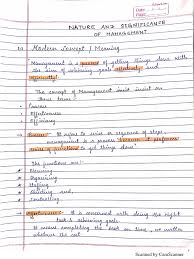 NATURE AND SIGNIFICANCE
OF MANAGEMENT
Modern Concept / Meaning
Management is a process of getting things done with
the aim of achieving goals effectively and
efficiently.
The concept of Management
three terms
Process
Effectiveness
Efficiency
Process : It means to series or sequence of steps
management process is a process performed
to get things done"
The functions are :
Planning
Organising
Staffing
Directing and,
controlling.
Effectiveness : It is concerned with doing the right
task & achieving goals.
It means completing the task on time, no matter
whatever the cost.
Scanned by CamScanner